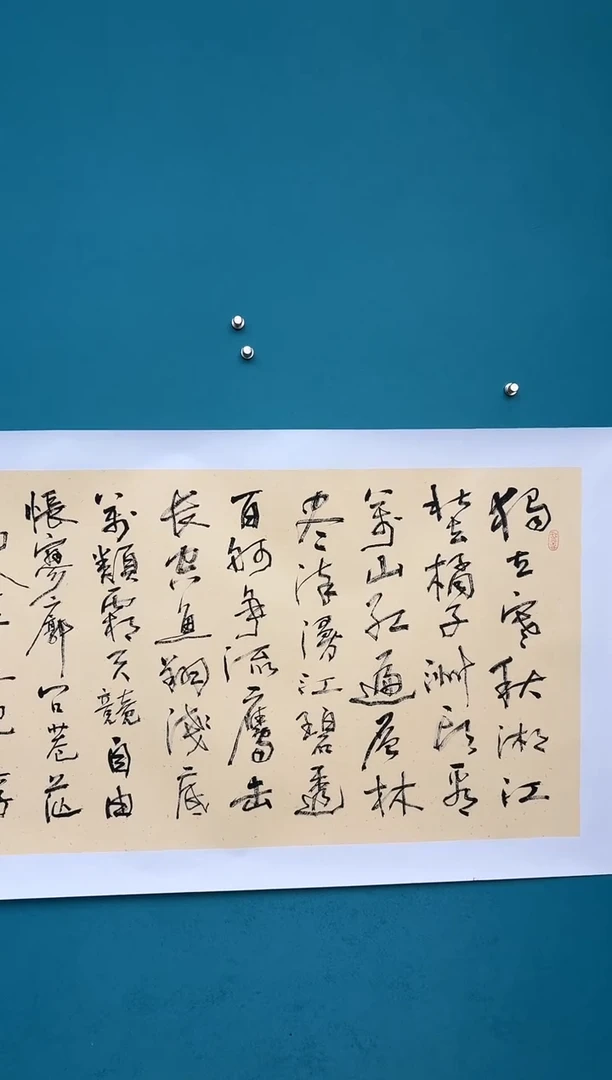 獨立寒秋湘江
北去橘子洲头看
萬山红遍层林
尽染漫江碧透
百舸争流鷹击
长空鱼翔淺底
萬類霜天競自由
悵寥廓问苍茫